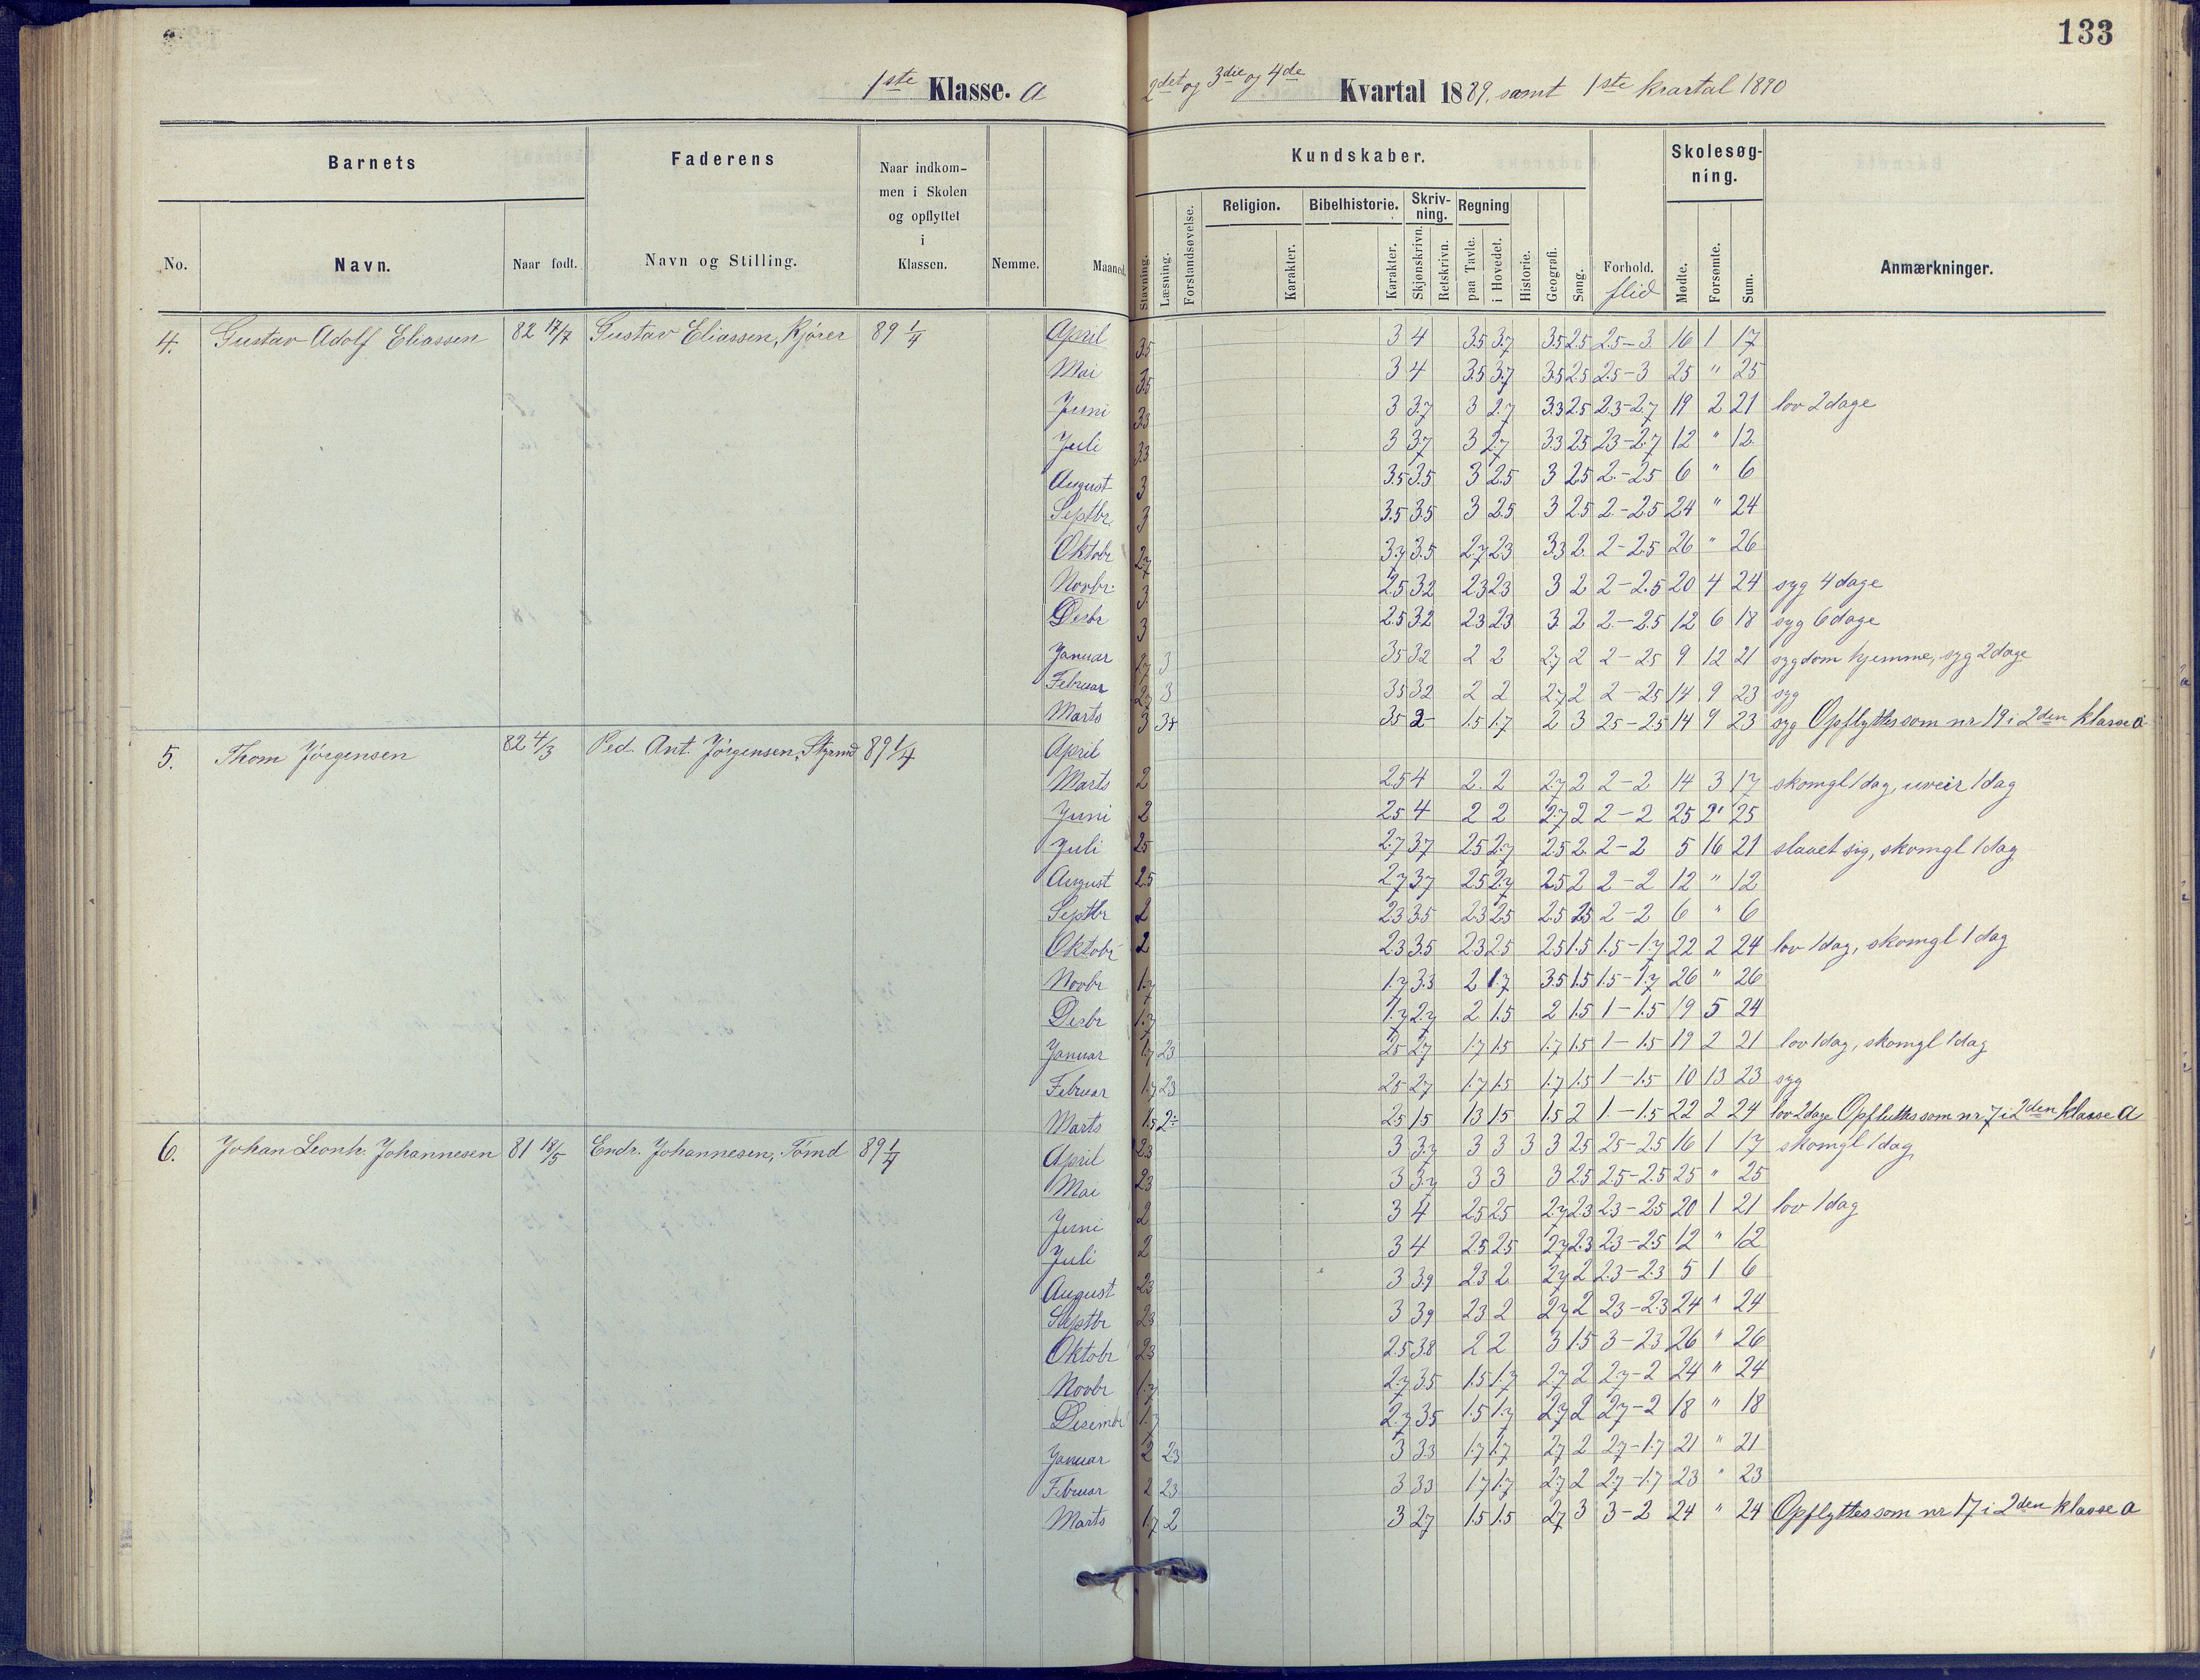 133
1ste Klasse. a 2det og 3die og 4de Kvartal 1889, samt 1ste kvartal 1890
Barnets Faderens Naar indkommen i Skolen og opflyttet i Klassen. Nemme. Maaned. Kundskaber. Skolesøgning. Anmærkninger.
No. Navn. Naar født. Navn og Stilling. Stavning. Læsning. Forstandsøvelse. Religion. Karakter. Bibelhistorie. Karakter. Skrivning. Skjønskrivn. Retskrivn. Regning paa Tavle. i Hovedet. Historie. Geografi. Sang. Forhold. flid Mødte. Forsømte. Sum.
4. Gustav Adolf Eliassen 82 17/7 Gustav Eliassen, Kjører 89 1/4 April 35 3 4 35 3.7 35 25 25-3. 16 1 17
Mai 35 3 4 35 3.7 35 25 25-3 25 " 25
Juni 33 3 37 3 2.7 33 25 23-27 19 2 21 lov 2 dage
Juli 33 3 37 3 27 33 25 23-27 12 " 12
August 3 35 35 3 25 3 25 2-25 6 " 6
Septbr. 3 35 35 3 25 3 25 2-25 24 " 24
Oktobr 27 37 35 27 23 33 2 2-25 26 " 26
Novbr. 3 25 32 23 23 3 2 2-25 20 4 24 syg 4 dage
Desbr 3 25 32 23 23 3 2 2-25 12 6 18 syg 6 dage
Januar 27 3 35 32 2 2 27 2 2-25 9 12 21 sygdom hjemme, syg 2 dage
Februar 27 3 35 32 2 2 27 2 2-25 14 9 23 syg
Marts 3 3+ 35 2- 15 17 2 3 25-25 14 9 23 syg Opflyttes som nr 19 i 2den klasse a
5. Thom Jørgensen 82 4/3 Ped. Ant. Jørgensen, Styrmd 89 1/4 April
Marts 2 25 4 2. 2 27 2 2-2 14 3 17 skomgl 1 dag, uveir 1 dag
Juni 2 25 4 2 2 27 2 2-2 25 " 25
Juli 25 27 37 25 27 25 2 2-2 5 16 21 slaaet sig, skomgl 1 dag
August 25 27 37 25 27 25 2 2-2 12 " 12
Septbr 2 23 35 23 25 25 25 2-2 6 " 6
Oktobr 2 23 35 23 25 25 15 15-17 22 2 24 lov 1 dag, skomgl 1 dag
Novbr 17 17 33 2 17 35 15 15-17 26 " 26
Desbr 17 17 27 2 15 2 15 1-15 19 5 24
Januar 17 23 25 27 17 15 17 15 1-15 19 2 21 lov 1 dag, skomgl 1 dag
Februar 17 23 25 27 17 15 17 15 1-15 10 13 23 syg
Marts 15 2÷ 25 15 13 15 15 2 1-15 22 2 24 lov 2 dage Opflyttes som nr 7 i 2den klasse a
6. Johan Leonh. Johannesen 81 18/5 Endr. Johannesen, Tømd 89 1/4 April 23 3 37 3 3 3 3 25 25-25 16 1 17 skomgl 1 dag
Mai 23 3 37 3 3 3 25 25-25 25 " 25
Juni 2 3 4 25 25 27 23 23-25 20 1 21 lov 1 dag
Juli 2 3 4 25 25 27 23 23-25 12 " 12
August 23 3 39 23 2 27 2 23-23 5 1 6
Septbr 23 3 39 23 2 27 2 23-23 24 " 24
Oktobr 23 25 38 2 2 3 15 3-23 26 " 26
Novbr 17 27 35 15 17 27 2 27-2 24 " 24
Desembr 17 27 35 15 17 27 2 27-2 18 " 18
Januar 2 23 3 33 17 17 27 2 27-17 21 " 21
Februar 2 23 3 33 17 17 27 2 27-17 23 " 23
Marts 17 2 3 27 15 15 27 3 3-2 24 " 24 Opflyttes som nr 17 i 2den klasse a